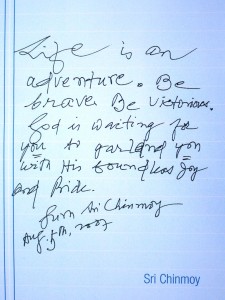 Life is an
adventure. Be
brave. Be victorious.
God is waiting for
you to garland you
with His boundless Joy
and Pride.
Sri Chinmoy
Aug. 5th, 2007
Sri Chinmoy